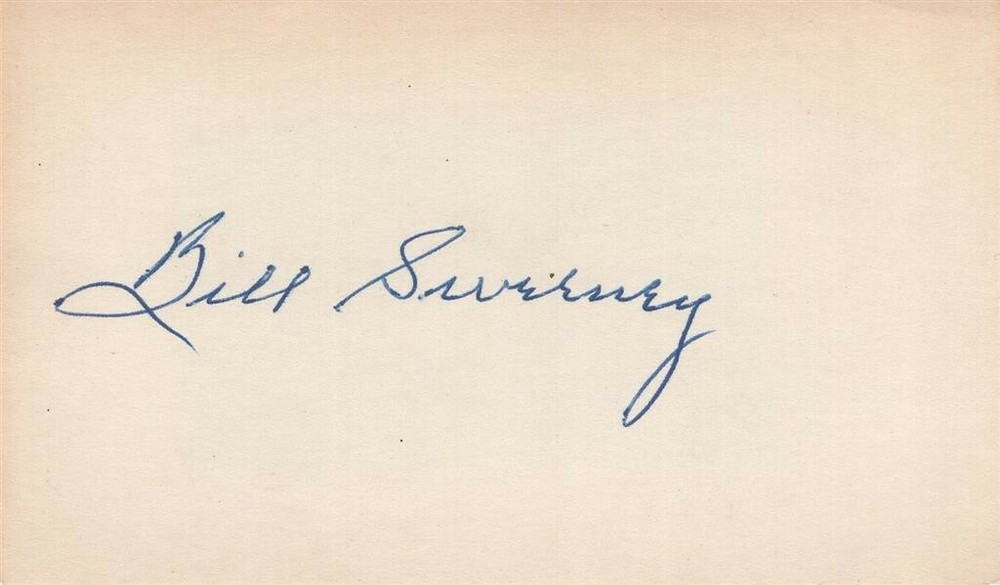 Bill Sweeney